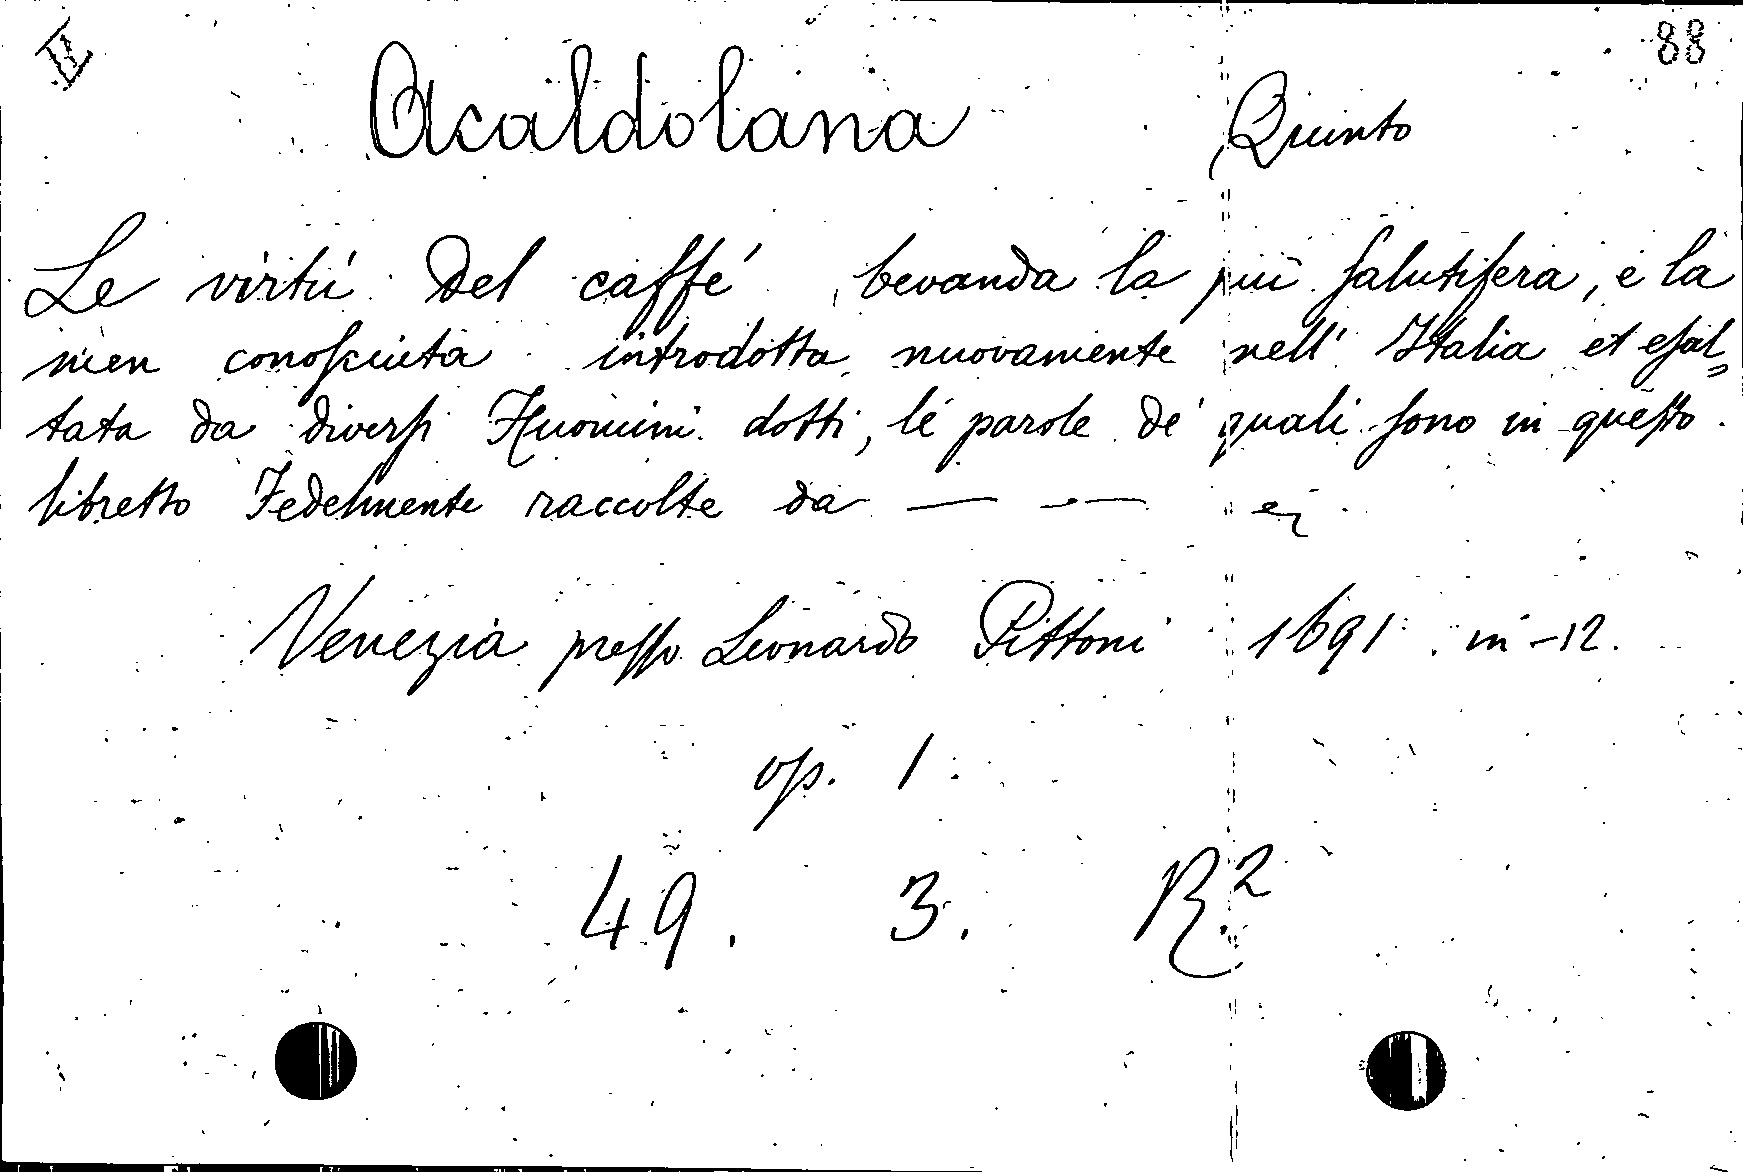 II 88
Acaldolana Quinto
Le virtú del caffé, bevanda la più salutifera, e la
men conosciuta introdotta nuovamente nell' Italia et esal=
tata da diversi Huomini dotti, le parole de' quali sono in questo
libretto Fedelmente raccolte da — —
Venezia presso Leonardo Pittoni 1691. in-12.
op. 1.
49. 3. R.2